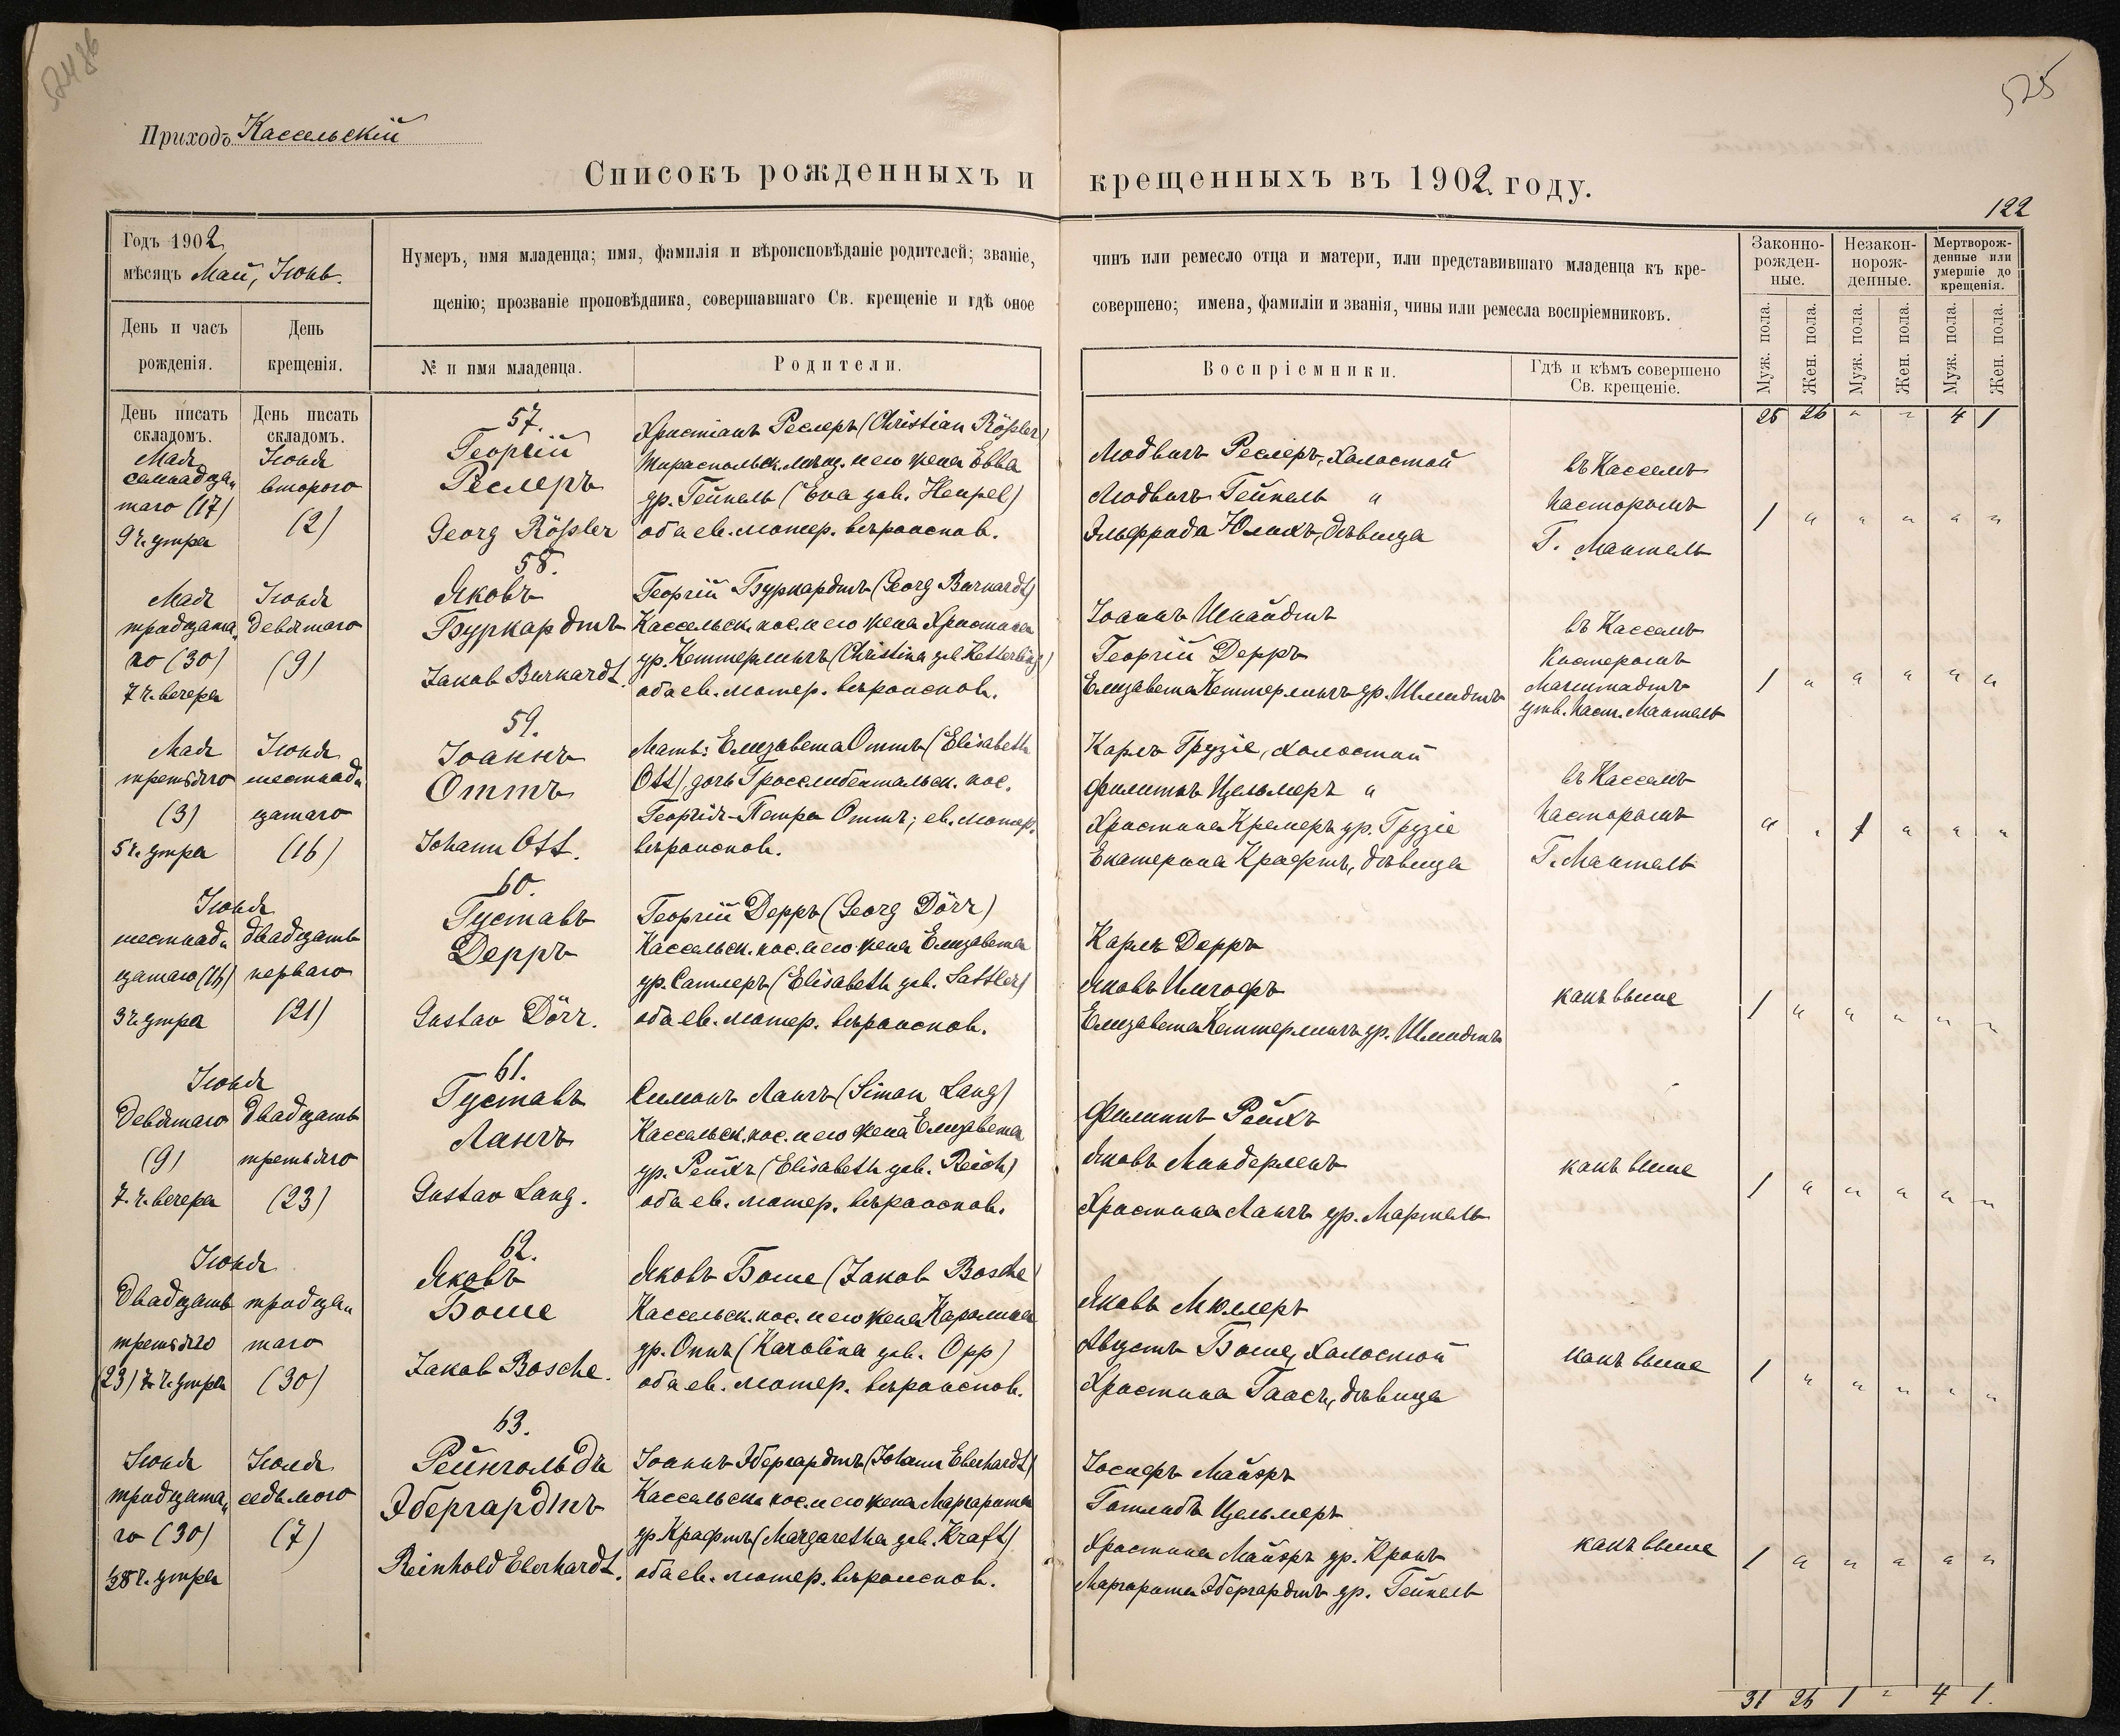 525
Приходъ Кассельскій
Списокъ рожденныхъ и крещенныхъ въ 1902 году.
122
Годъ 1902
мѣсяцъ Май, Іюнь.
Нумеръ, имя младенца; имя, фамилія и вѣроисповѣданіе родителей; званіе,
чинъ или ремесло отца и матери, или представившаго младенца къ кре-
щенію; прозваніе проповѣдника, совершавшаго Св. крещеніе и гдѣ оное
совершено; имена, фамиліи и званія, чины или ремесла воспріемниковъ.
Законно-
рожден-
ные.
Незакон-
норож-
денные.
Мертворож-
денные или
умершіе до
крещенія.
День и часъ
рожденія.
День
крещенія.
№ и имя младенца.
Родители.
Воспріемники.
Гдѣ и кѣмъ совершено
Св. крещеніе.
Муж. пола.
Жен. пола.
Муж. пола.
Жен. пола.
Муж. пола.
Жен. пола.
День писать
складомъ.
День писать
складомъ.
25 26 " " 4 1
Мая
семнадца"
таго (17)
9 ч. утра
Іюня
второго
(2)
57.
Георгій
Реслеръ
Georg Rößler
Христіанъ Реслеръ (Christian Rößler)
Тираспольск. мѣщ. и его жена Евва
ур. Гейпель (Eva geb. Heupel)
оба ев. лютер. вѣроиспов.
Людвигъ Реслеръ, холостой
Людвигъ Гейпель "
Эльфрида Юлихъ, дѣвица
въ Касселѣ
пасторомъ
Г. Мантель
1 " " " " "
Мая
тридцата"
го (30)
7 ч. вечера
Іюня
девятаго
(9)
58.
Яковъ
Буркардтъ
Jakob Burkardt.
Георгій Буркардтъ (Georg Burkardt)
Кассельск. пос. и его жена Христина
ур. Кеттерлингъ (Christina geb. Ketterling)
оба ев. лютер. вѣроиспов.
Іоаннъ Шнайдтъ
Георгій Дерръ
Елизавета Кеттерлингъ ур. Шмидтъ
въ Касселѣ
Кистеромъ
утв. паст. Мантель
1 " " " " "
Мая
третьяго
(3)
5 ч. утра
Іюня
шестнад"
цатаго
(16)
59.
Іоаннъ
Оттъ
Johann Ott.
Мать: Елизавета Оттъ (Elisabeth
Ott) дочь Гросслибентальск. пос.
Георгія-Петра Оттъ; ев. лютер.
вѣроиспов.
Карлъ Грузіе, холостой
Филиппъ Цельмеръ "
Христина Кремеръ ур. Грузіе
Екатерина Крафтъ, дѣвица
въ Касселѣ
пасторомъ
Г. Мантель
" " 1 " " "
Іюня
шестнад"
цатаго (16)
3 ч. утра
двадцать
перваго
(21)
60.
Густавъ
Дерръ
Gustav Dörr.
Георгій Дерръ (Georg Dörr)
Кассельск. пос. и его жена Елизавета
ур. Сатлеръ (Elisabeth geb. Sattler)
оба ев. лютер. вѣроиспов.
Карлъ Дерръ
Яковъ Имгофъ
Елизавета Кеттерлингъ ур. Шмидтъ
какъ выше
1 " " " " "
Іюня
девятаго
(9)
7 ч. вечера
двадцать
третьяго
(23)
61.
Густавъ
Лангъ
Gustav Lang.
Симонъ Лангъ (Simon Lang)
Кассельск. пос. и его жена Елизавета
ур. Рейхъ (Elisabeth geb. Reich)
оба ев. лютер. вѣроиспов.
Филиппъ Рейхъ
Яковъ Миндерленъ
Христина Лангъ ур. Мартель
какъ выше
1 " " " " "
Іюня
двадцать
третьяго
(23) 7 ч. утра
тридца"
таго
(30)
62.
Яковъ
Боше
Jakob Bosche.
Яковъ Боше (Jakob Bosche)
Кассельск. пос. и его жена Каролина
ур. Оппъ (Karolina geb. Opp)
оба ев. лютер. вѣроиспов.
Яковъ Мюллеръ
Августъ Боше, холостой
Христина Гаасъ, дѣвица
какъ выше
1 " " " " "
Іюня
тридцата"
го (30)
ч. утра
Іюля
седьмого
(7)
63.
Рейнгольдъ
Эбергардтъ
Reinhold Eberhardt.
Іоаннъ Эбергардтъ (Johann Eberhardt)
Кассельск. пос. и его жена Маргарита
ур. Крафтъ (Margaretha geb. Kraft)
оба ев. лютер. вѣроиспов.
Іосифъ Майэръ
Готлибъ Цельмеръ
Христина Майэръ ур. Кронъ
Маргарита Эбергардтъ ур. Гейпель
какъ выше
1 " " " " "
31 26 1 " 4 1.